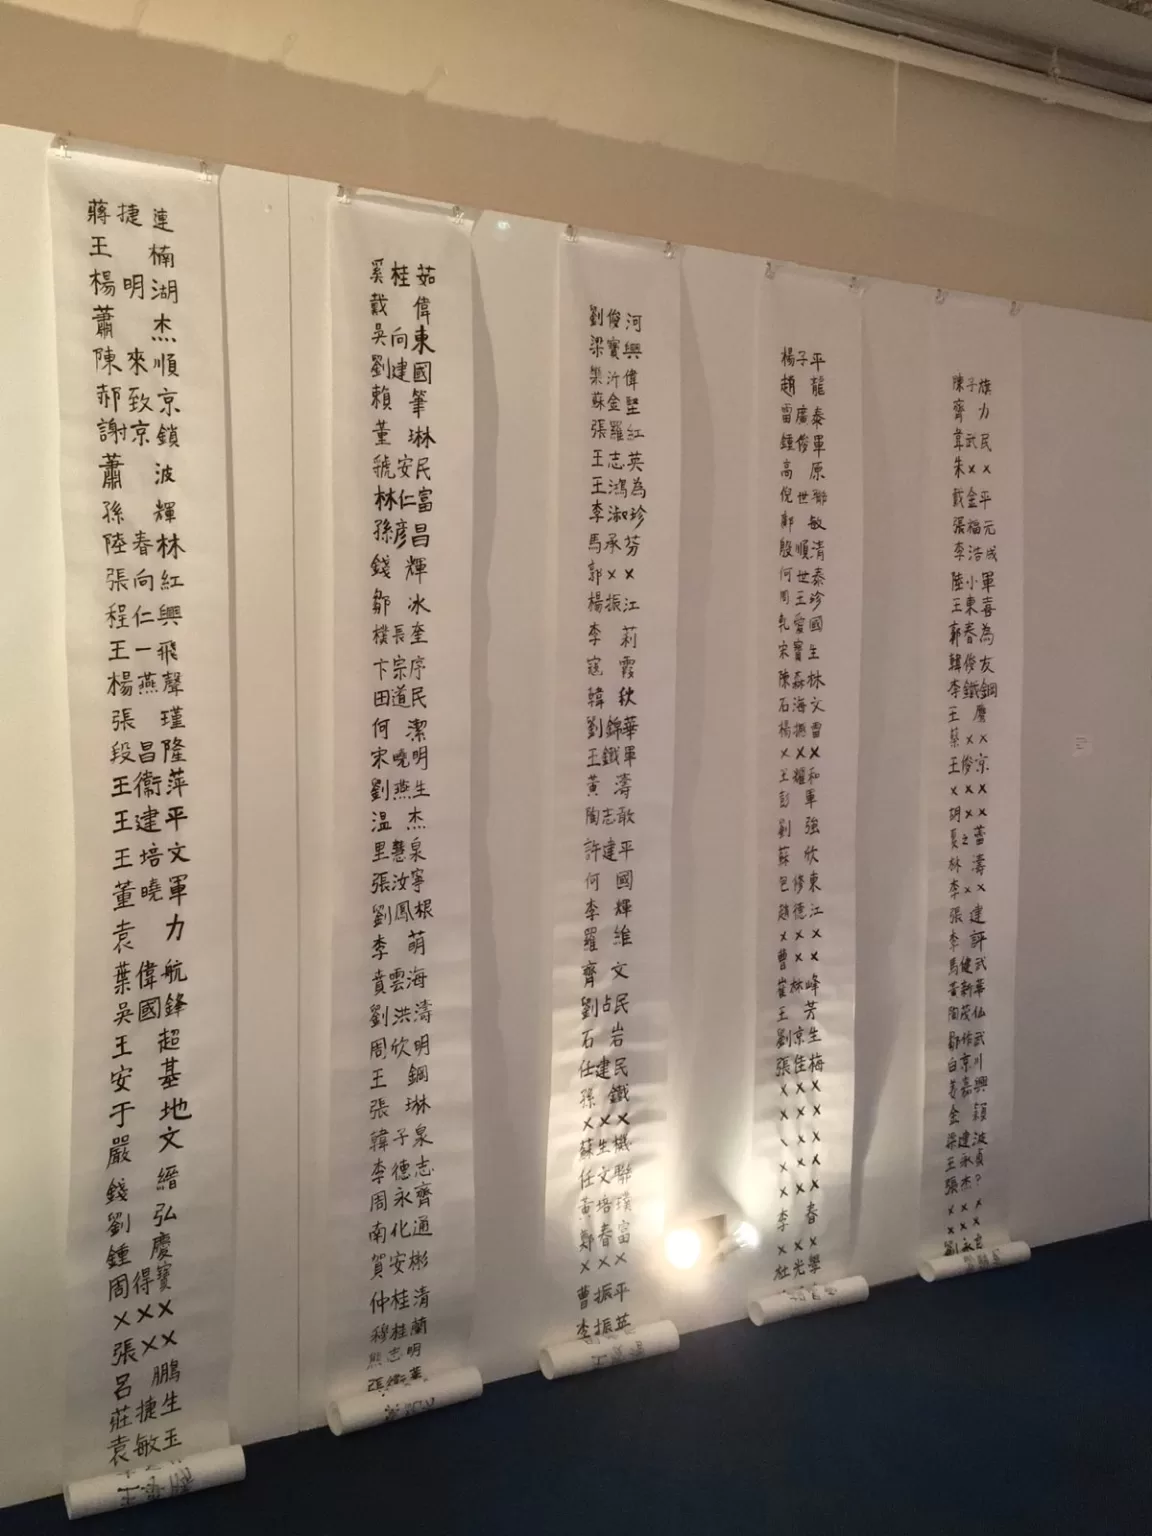 蔣捷連
王楠
楊明湖
蕭杰
陳來順
郝致京
謝京鎖
蕭波
孫輝
陸春林
張向紅
程仁興
王一飛
楊燕聲
張瑾
段昌隆
王衞萍
王建平
王培文
董曉軍
袁力
葉偉航
吳國鋒
王超
安基
于地
嚴文
錢縉
劉弘
鍾慶
周得寶
×××
張××
呂鵬
莊捷生
袁敏玉
奚桂茹
戴偉
吳向東
劉建國
賴筆
董琳
虢安民
林仁富
孫彦昌
錢輝
鄒冰
樸長奎
卞宗序
田道民
何潔
宋曉明
劉燕生
溫杰
里慧泉
張汝寧
劉鳳根
李萌
賁雲海
劉洪濤
周欣明
王鋼
張琳
韓子泉
李德志
周永齊
南化通
賀安彬
仲桂清
穆桂蘭
熊志明
劉俊河
梁寶興
欒沂偉
蘇金堅
張羅紅
王志英
王鴻為
李淑珍
馬承芬
郭××
楊振江
李莉
寇霞
韓秋
劉錦華
王鐵軍
黃濤
陶志敢
許建平
何國
李輝
羅維
齊文
劉占民
石岩
任建民
孫鐵
×××
蘇生機
任文聯
黃培璞
鄭春富
×××
曹振平
李振英
楊子平
趙龍
雷廣泰
鍾俊軍
高原
倪世聯
郭敏
殷順清
何世泰
周玉珍
孔愛國
宋寶生
陳森林
石海文
楊振雷
×××
王耀和
彭軍
劉強
蘇欣
包修東
趙德江
×××
曹××
崔林峰
王芳
劉京生
張佳梅
×××
×××
×××
×××
李春
×××
杜光學
陳子旗
齊力
韋武民
朱××
戴金平
張福元
李浩成
陸小軍
王東喜
郭春為
韓俊友
李鐵鋼
王鷹
蔡××
王俊京
×××
胡××
夏之蕾
林濤
李××
張建
李評
馬健武
黃新華
陶茂仙
鄢作武
白京川
姜嘉興
金穎
梁建波
王永貞
張杰?
×××
×××